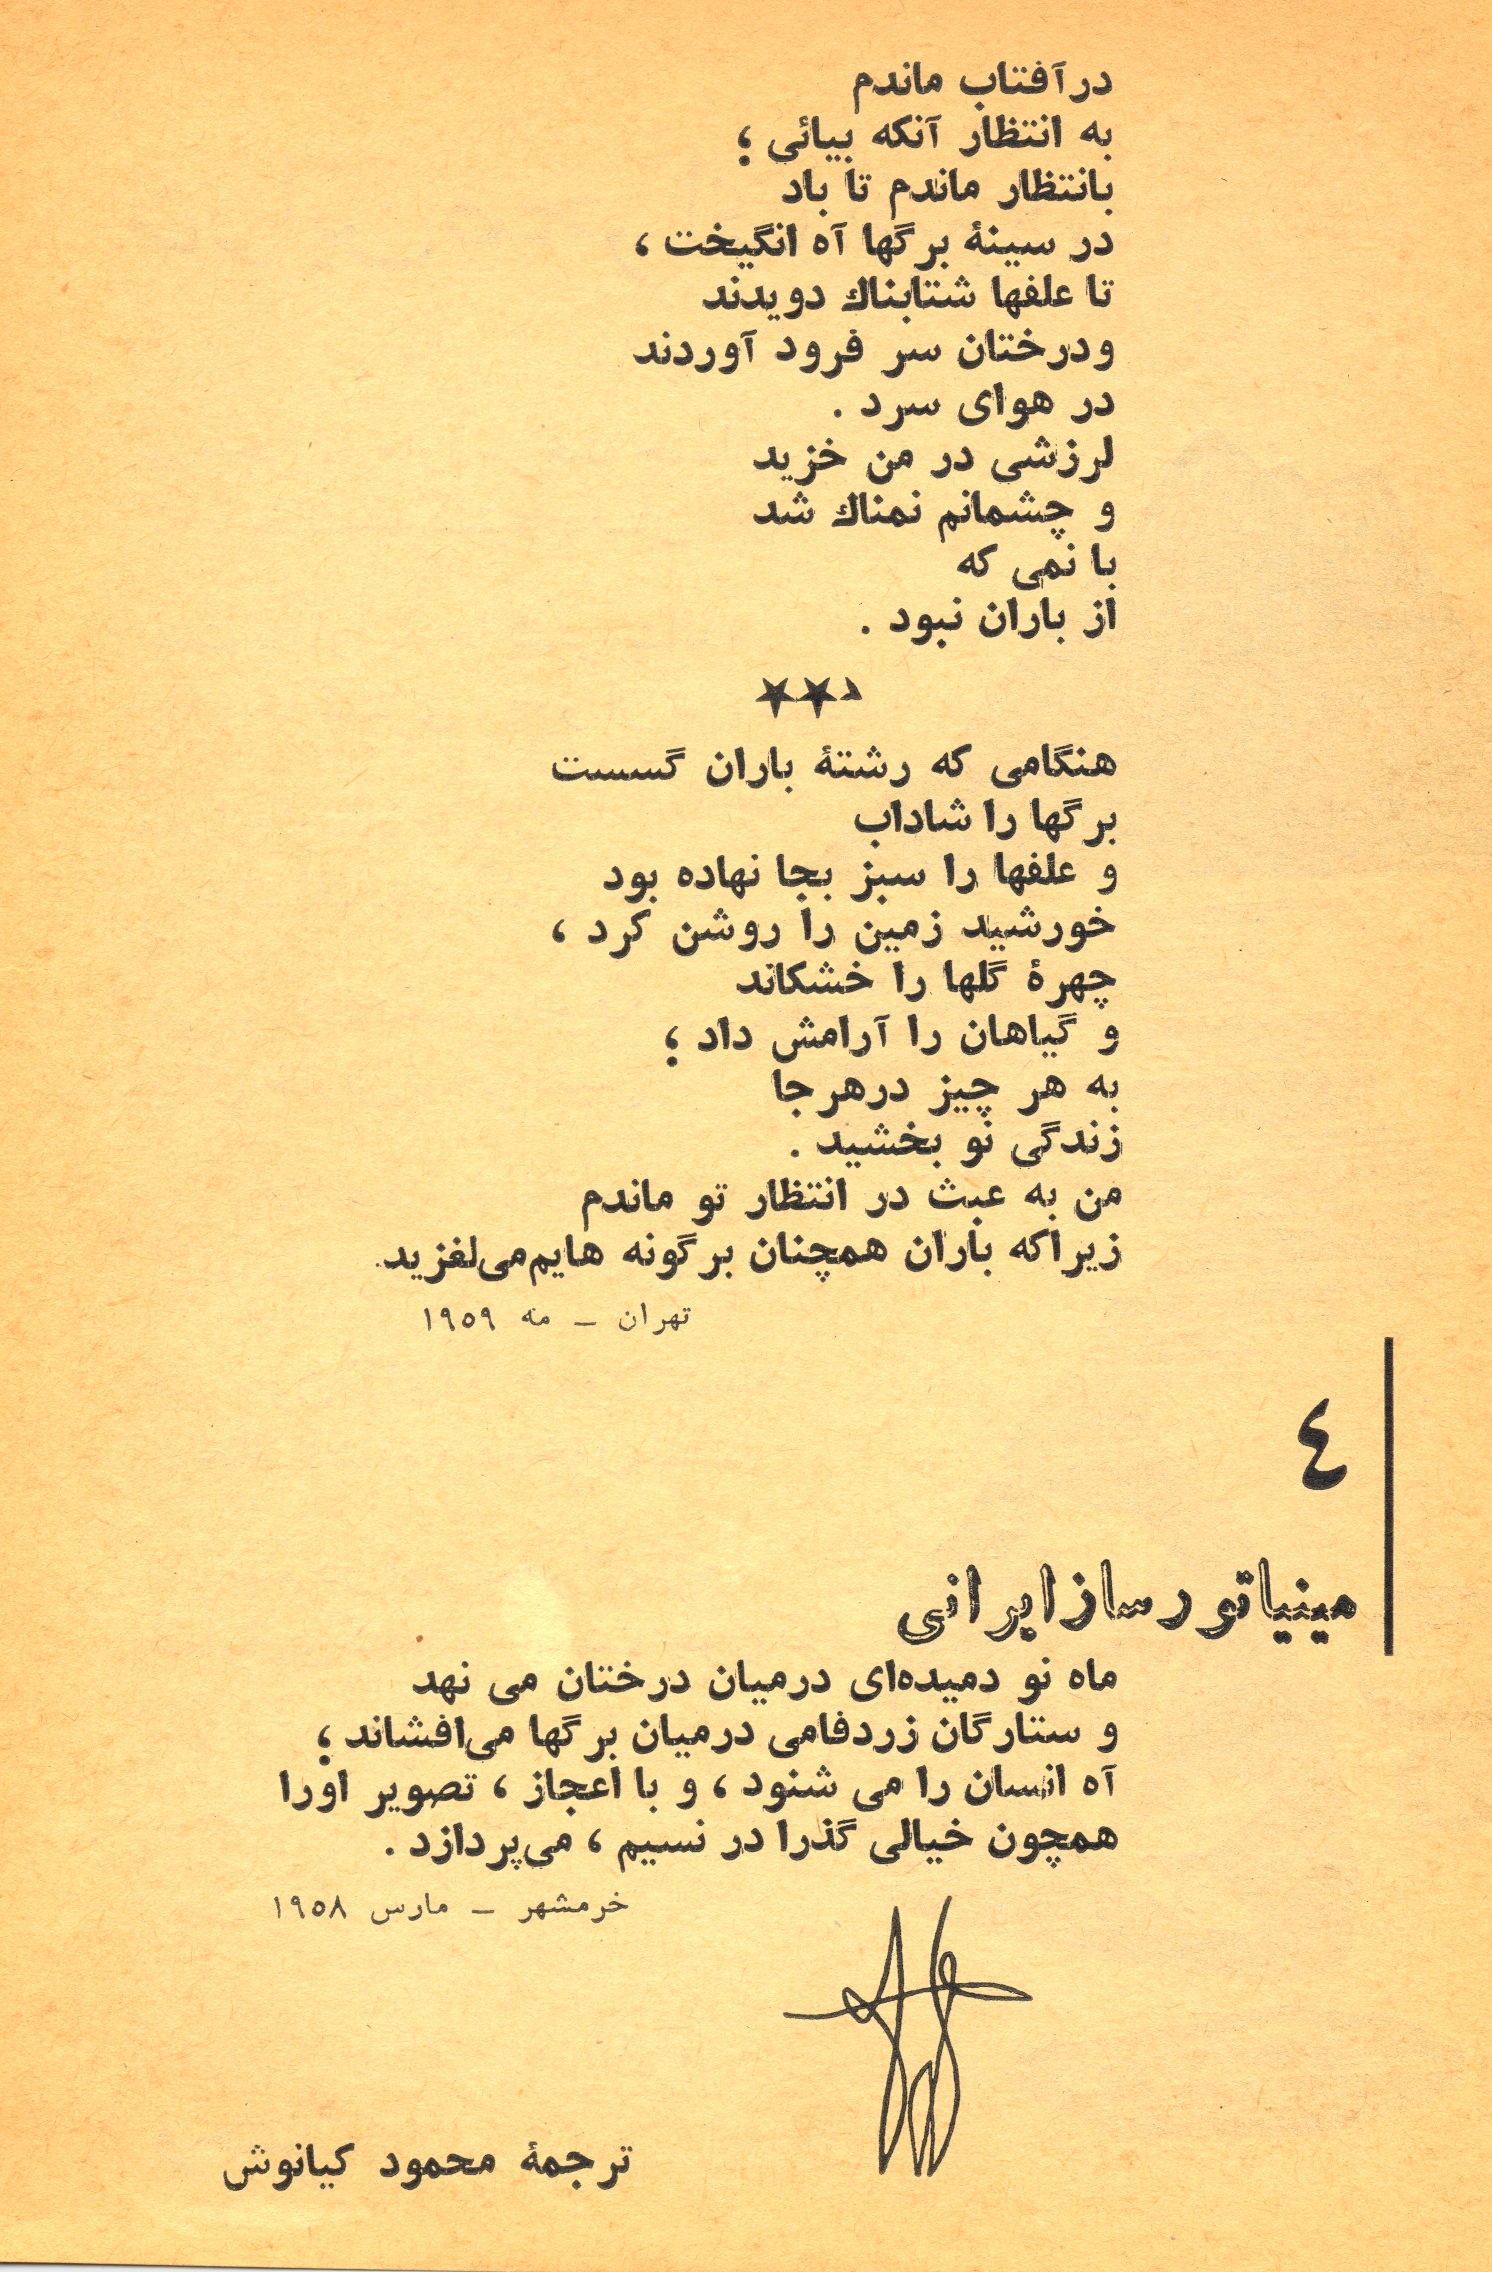 درآفتاب ماندم
به انتظار آنکه بیائی ؛
بانتظار ماندم تا باد
در سینهٔ برگها آه انگیخت ،
تا علفها شتابناك دویدند
ودرختان سر فرود آوردند
در هوای سرد .
لرزشی در من خزید
و چشمانم نمناك شد
با نمی که
از باران نبود .
★★★
هنگامی که رشتهٔ باران گسست
برگها را شاداب
و علفها را سبز بجا نهاده بود
خورشید زمین را روشن کرد ،
چهرهٔ گلها را خشکاند
و گیاهان را آرامش داد ؛
به هر چیز درهرجا
زندگی نو بخشید .
من به عبث در انتظار تو ماندم
زیراکه باران همچنان برگونه هایم‌می‌لغزید.
تهران – مه ۱۹۵۹
٤
مینیاتورسازایرانی
ماه نو دمیده‌ای درمیان درختان می نهد
و ستارگان زردفامی درمیان برگها می‌افشاند ؛
آه انسان را می شنود ، و با اعجاز ، تصویر اورا
همچون خیالی گذرا در نسیم ، می‌پردازد .
خرمشهر – مارس ۱۹۵۸
ترجمهٔ محمود کیانوش